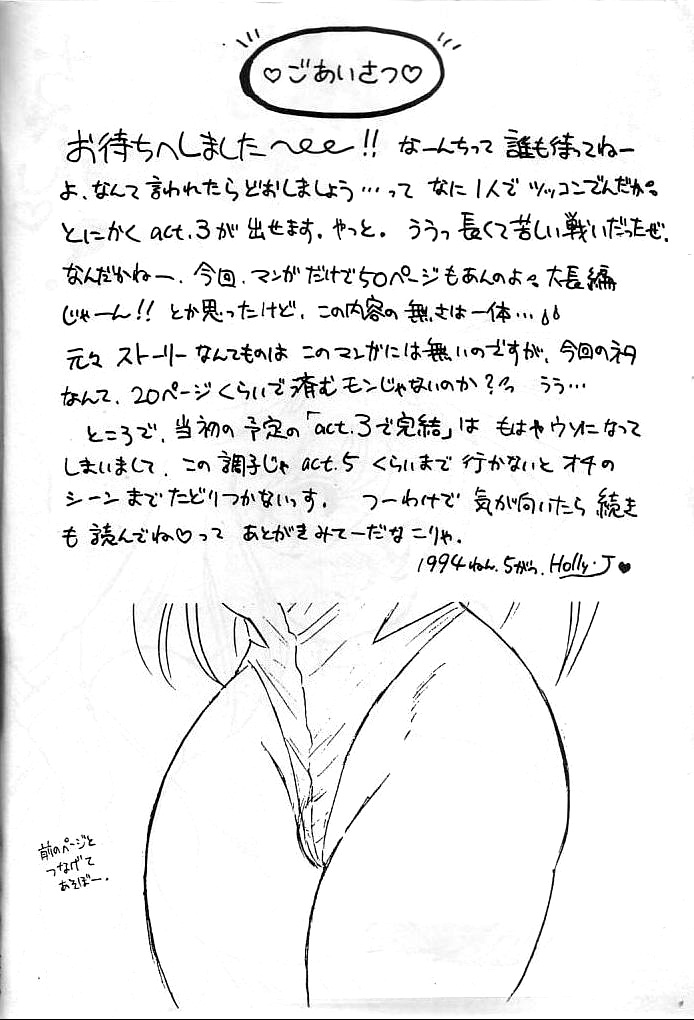 ♡ごあいさつ♡
お待ちへしました〜ee!! なーんちって 誰も待ってねー
よ、なんて言われたらどおしましょう…って なに1人で ツッコンでんだか。
とにかく act.3が 出せます。やっと。 ううっ 長くて苦しい戦いだったぜ.
なんだかねー、今回、マンガだけで50ページもあんのよ。大長編
じゃーん!! とか思ったけど、この内容の無さは一体…
元々 ストーリーなんてものは このマンガには無いのですが、今回のネタ
なんて、20ページくらいで済むモンじゃないのか?っ うう…
ところで、当初の予定の「act.3で完結」は もはやウソになって
しまいまして、この調子じゃ act.5 くらいまで行かないと オチの
シーンまでたどりつかないっす。 つーわけで 気が向いたら続き
も 読んでね♡って あとがきみてーだなこりゃ.
1994ねん.5がつ. Holly・J♥
前のページと
つなげて
あそぼー.